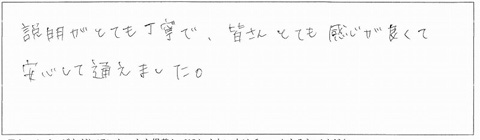 説明がとても丁寧で、皆さんとても感心が良くて
安心して通えました。